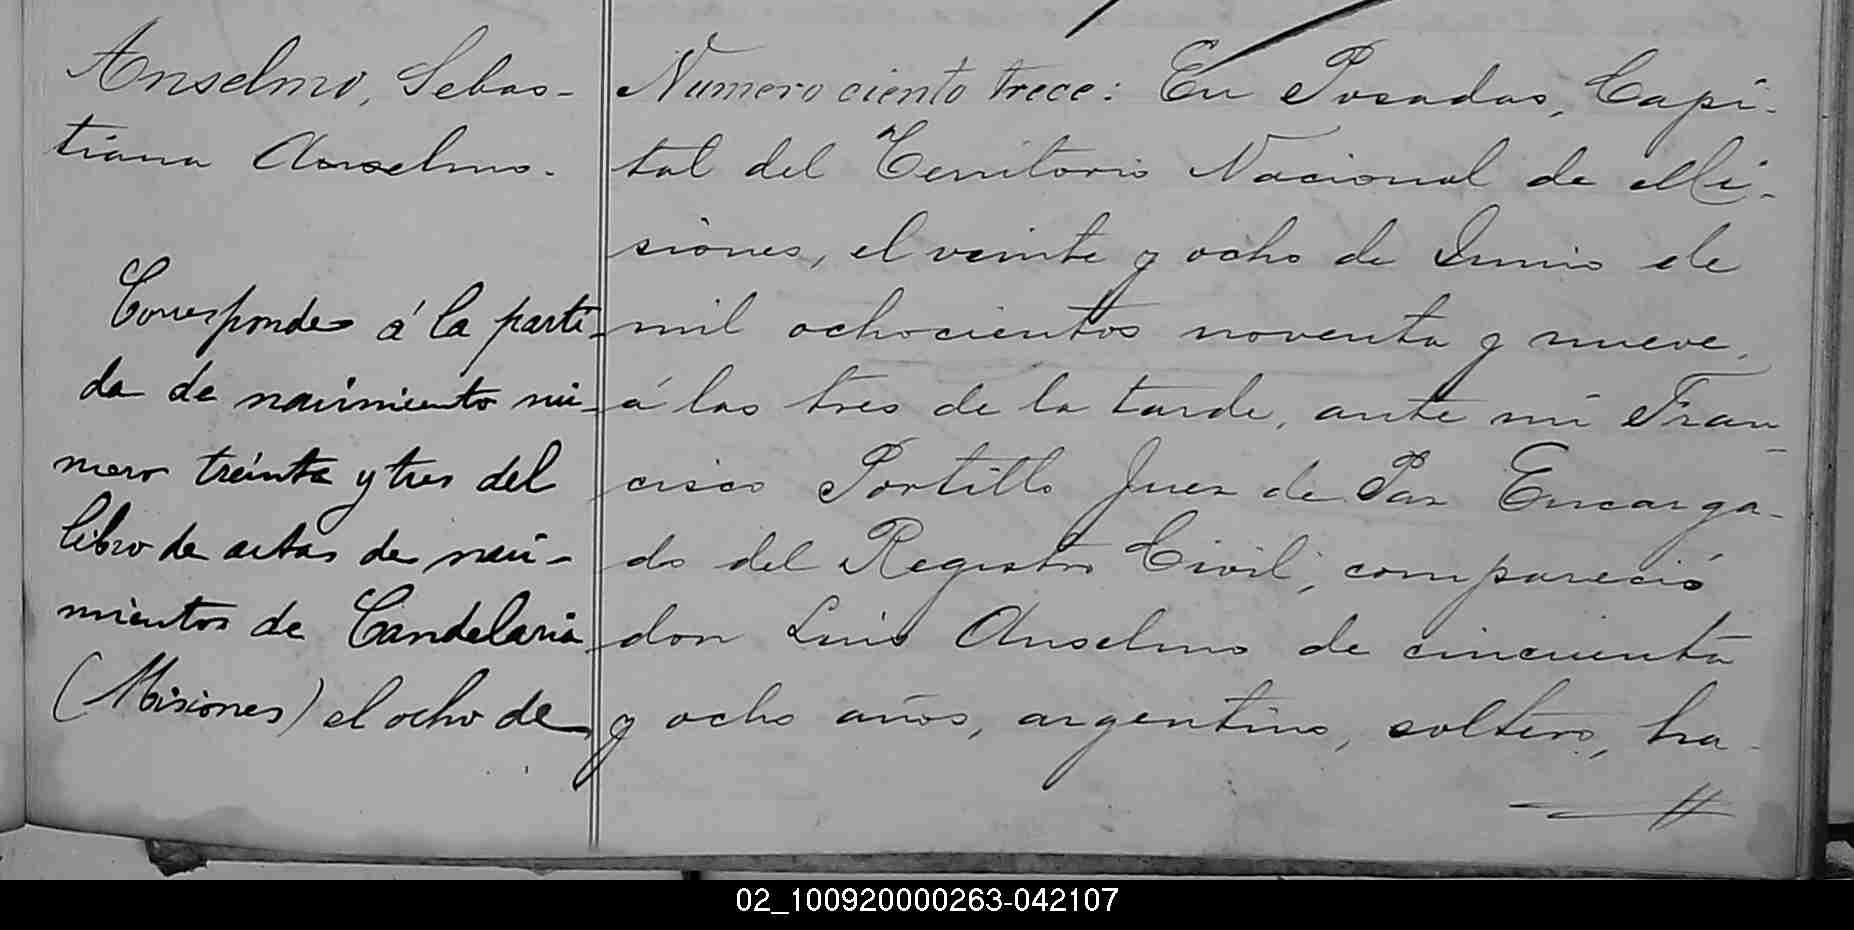 Anselmo, Sebas-
tiana Anselmo.
Corresponde á la parti-
da de nacimiento nú-
mero treinta y tres del
libro de actas de naci-
mientos de Candelaria
(Misiones) el ocho de
Numero ciento trece: En Posadas, Capi-
tal del Territorio Nacional de Mi-
siones, el veinte y ocho de Junio de
mil ochocientos noventa y nueve,
á las tres de la tarde, ante mi Fran-
cisco Portillo Juez de Paz Encarga-
do del Registro Civil, compareció
don Luis Anselmo de cincuenta
y ocho años, argentino, soltero, ha-
02_100920000263-042107